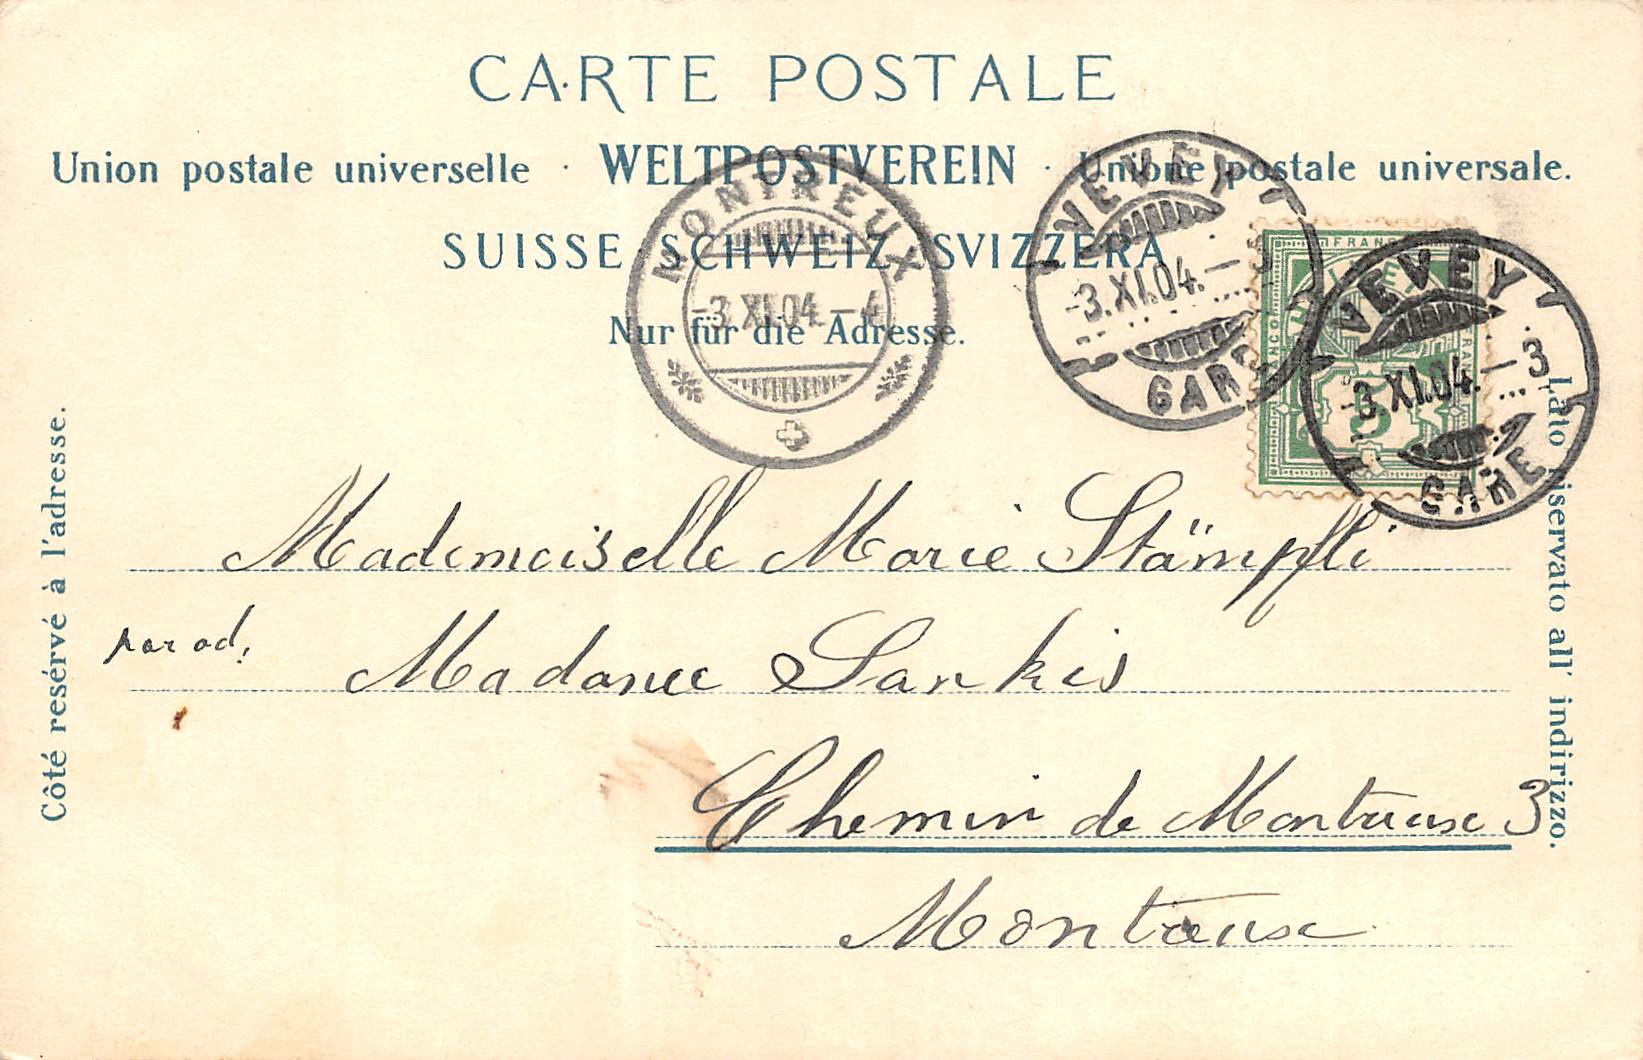 CARTE POSTALE
Union postale universelle · WELTPOSTVEREIN · Unione postale universale.
SUISSE SCHWEIZ SVIZZERA
Nur für die Adresse.
MONTREUX
-3.XI.04.-4
VEVEY
-3.XI.04.-3
GARE
FRANCO
5
VEVEY
-3.XI.04.-3
GARE
Côté resérvé à l'adresse.
Lato riservato all' indirizzo.
Mademoiselle Marie Stämpfli
par ad.
Madame Sankis
Chemin de Montreux 3
Montreux